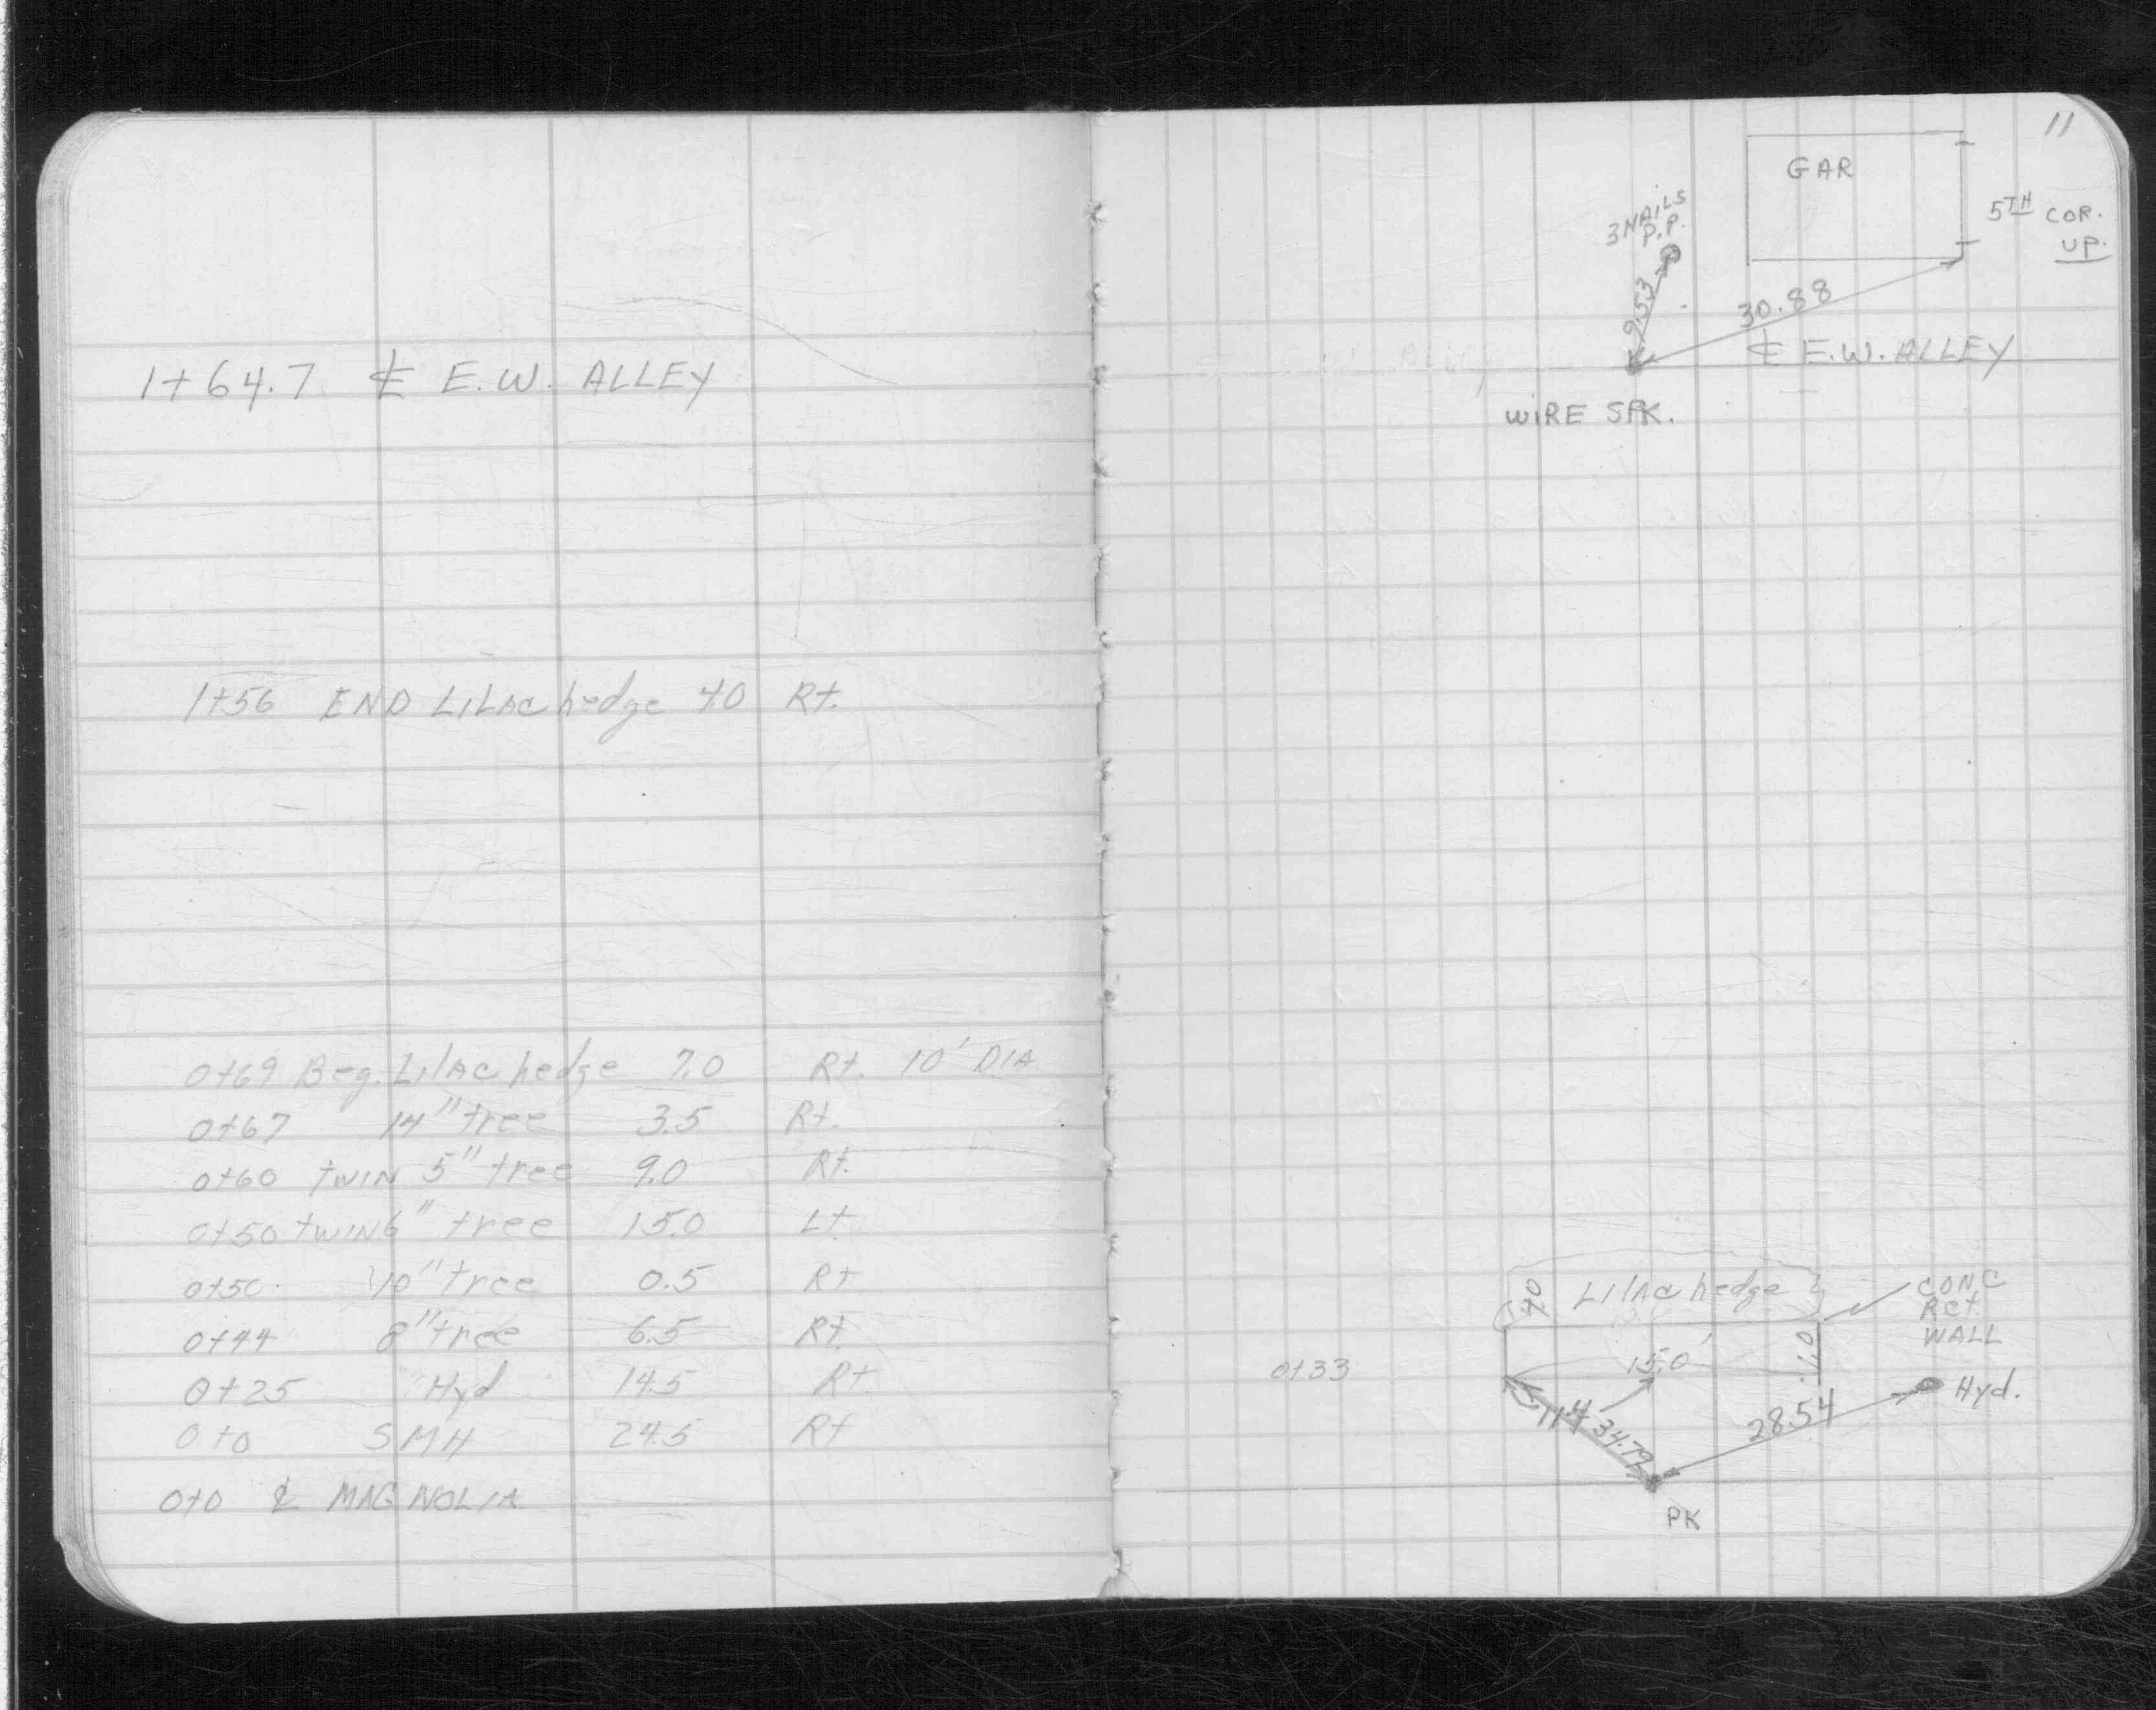 1+64.7 ℄ E.W. ALLEY
1+56 END LiLAc hedge 4.0 Rt.
0+69 Beg. LilAc hedge 7.0 Rt. 10' DIA
0+67 14" tree 3.5 Rt.
0+60 TWIN 5" tree 9.0 Rt.
0+50 TWIN 6" tree 15.0 Lt
0+50 10" tree 0.5 Rt
0+44 8" tree 6.5 Rt.
0+25 Hyd 14.5 Rt.
0+0 SMH 24.5 Rt
0+0 ℄ MAGNOLIA
11
GAR
3 NAILS
P.P.
5TH COR.
UP.
9.53
30.88
℄ E.W. ALLEY
WIRE SPK.
LilAc hedge
4.0
CONC
Ret.
WALL
0+33
15.0'
1.0
Hyd.
34.79
28.54
PK